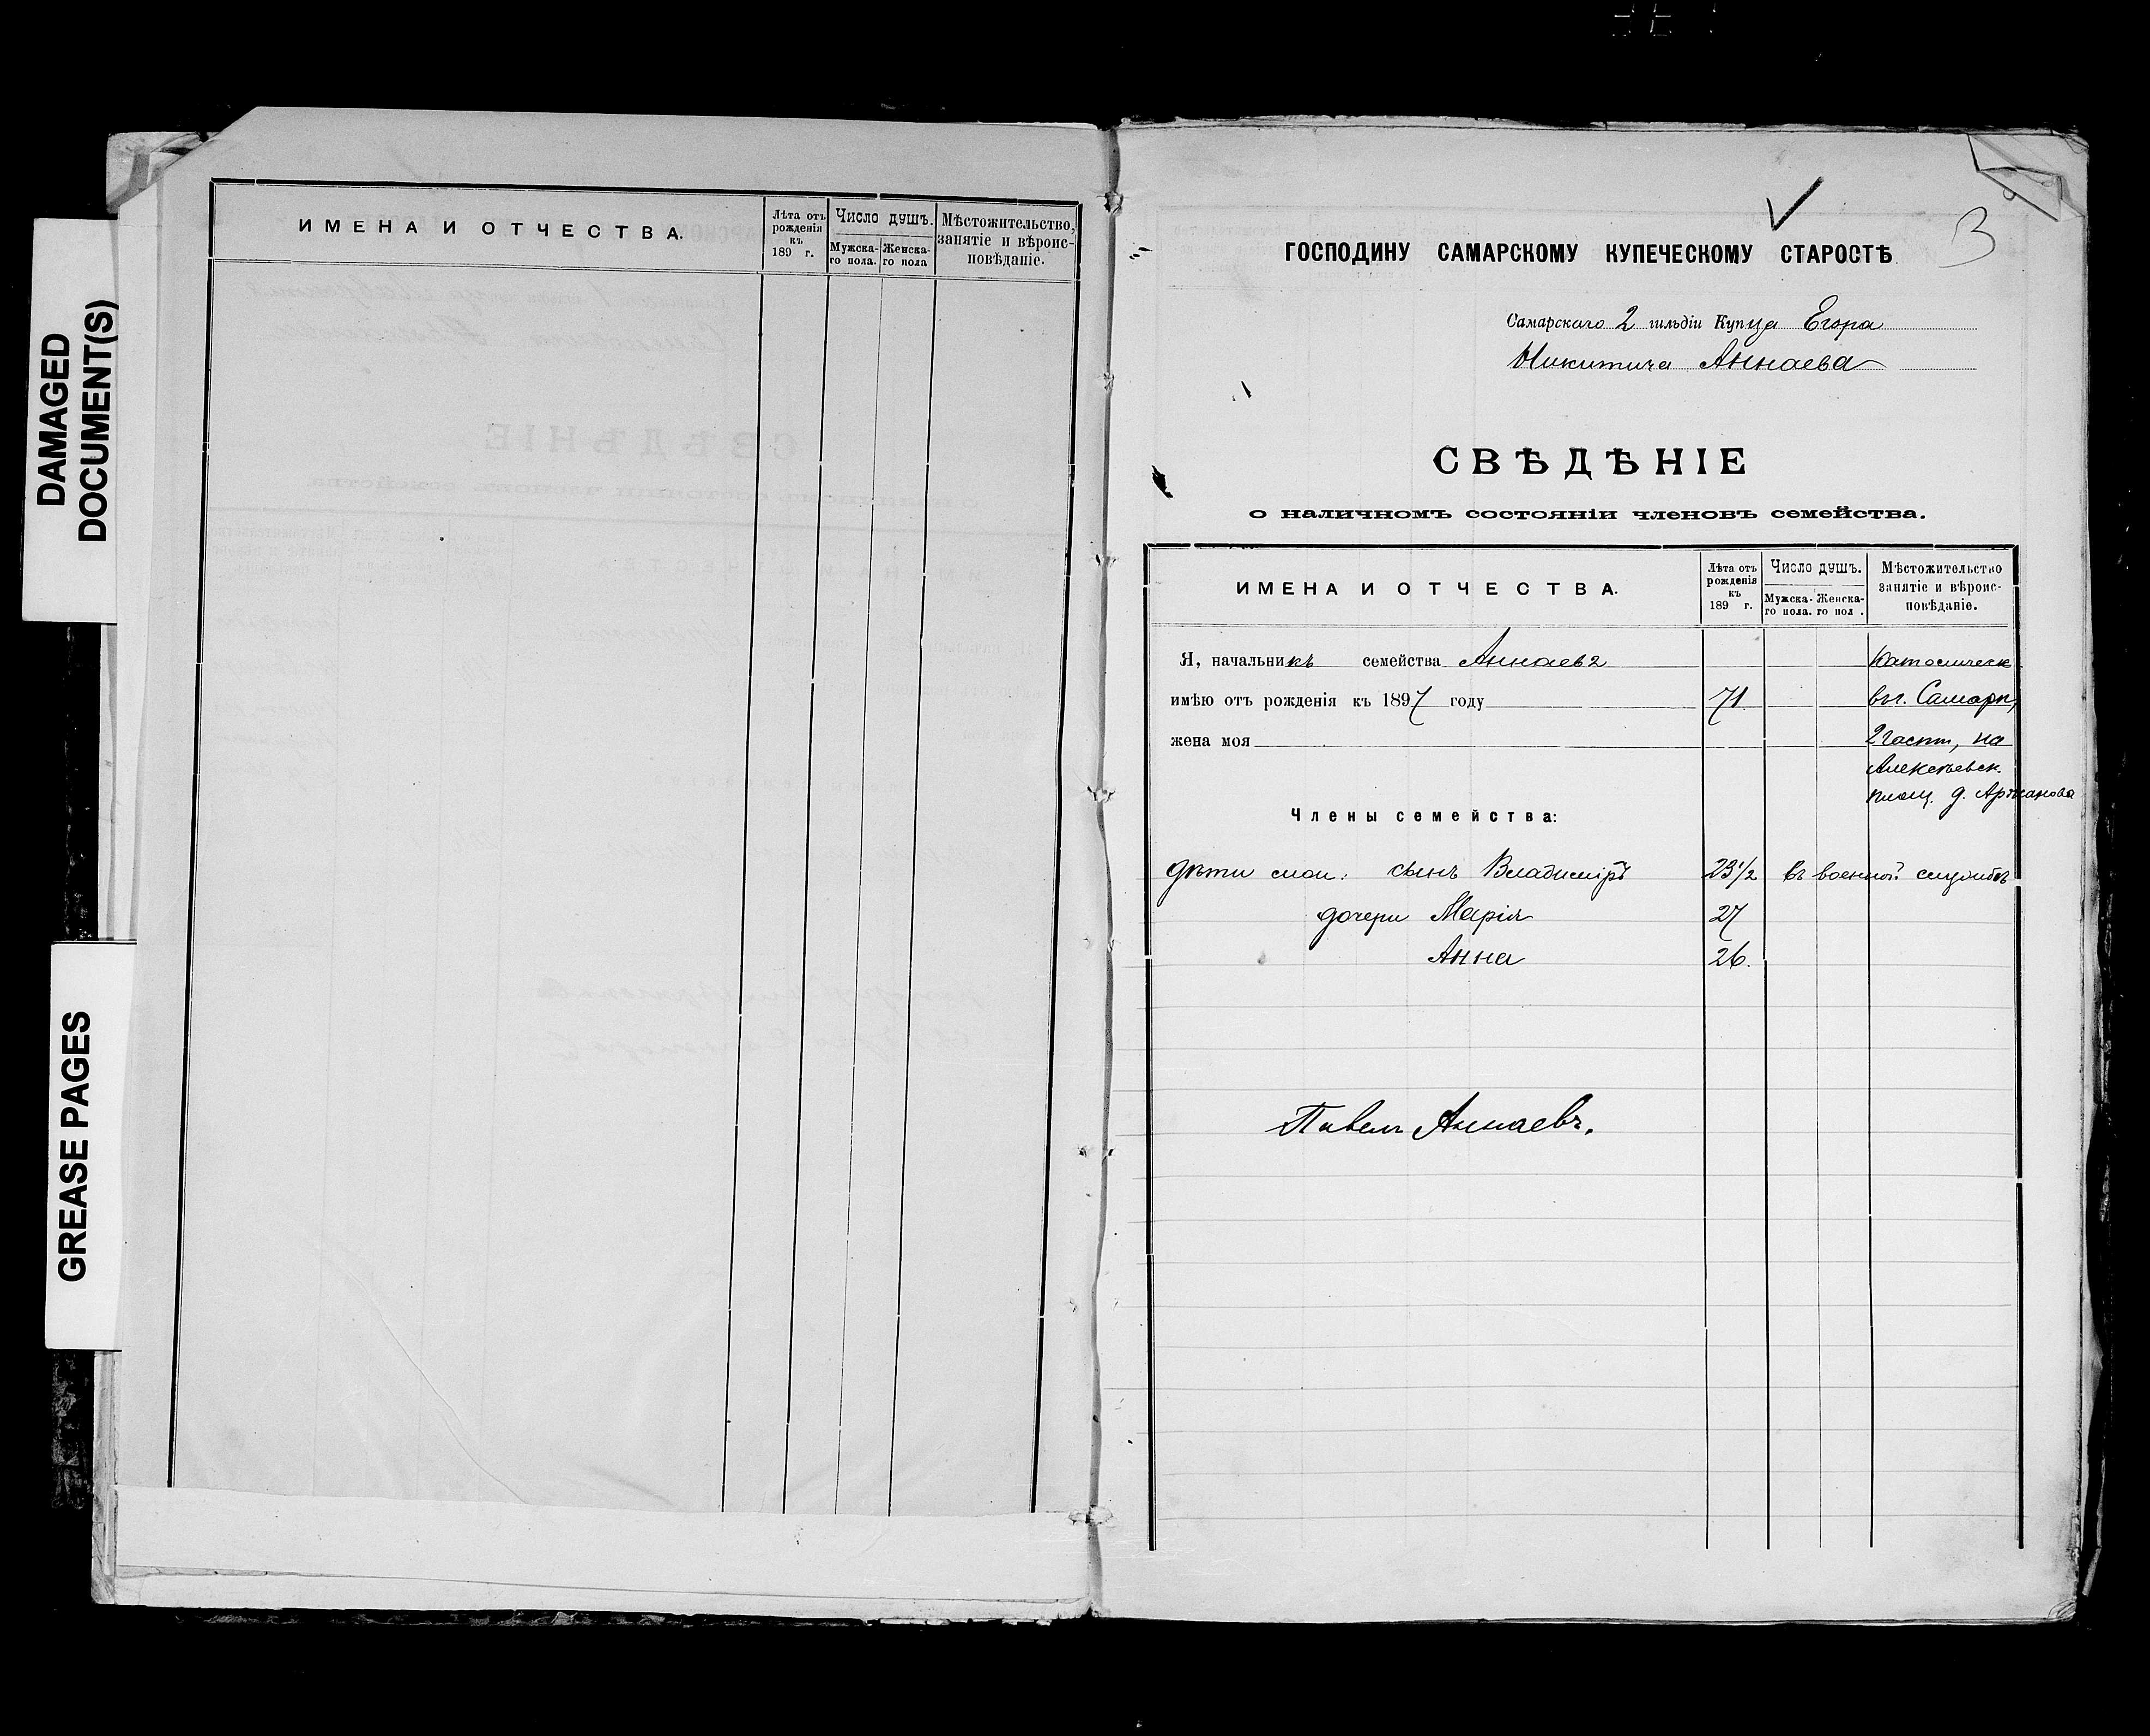 DAMAGED
DOCUMENT(S)
GREASE PAGES
ИМЕНА И ОТЧЕСТВА.
Лѣта отъ
рожденія
къ
189 г.
Число душъ.
Мужска-
го пола.
Женска-
го пола
Мѣстожительство,
занятіе и вѣроис-
повѣданіе.
3
ГОСПОДИНУ САМАРСКОМУ КУПЕЧЕСКОМУ СТАРОСТѢ
Самарскаго 2 гильдіи Купца Егора
Никитича Аннаева
СВѢДѢНІЕ
о наличномъ состояніи членовъ семейства.
ИМЕНА И ОТЧЕСТВА.
Лѣта отъ
рожденія
къ
189 г.
Число душъ.
Мужска-
го пола.
Женска-
го пол .
Мѣстожительство
занятіе и вѣроис-
повѣданіе.
Я, начальникъ семейства Аннаевъ Католическ
имѣю отъ рожденія къ 1897 году 71 въ г. Самарѣ,
жена моя 2 части, на
Алексѣевск.
площ. д. Аржанова
Члены семейства:
Дѣти мои: сынъ Владиміръ 23 1/2 въ военной службѣ
дочери Марія 27
Анна 26.
Павелъ Аннаевъ.